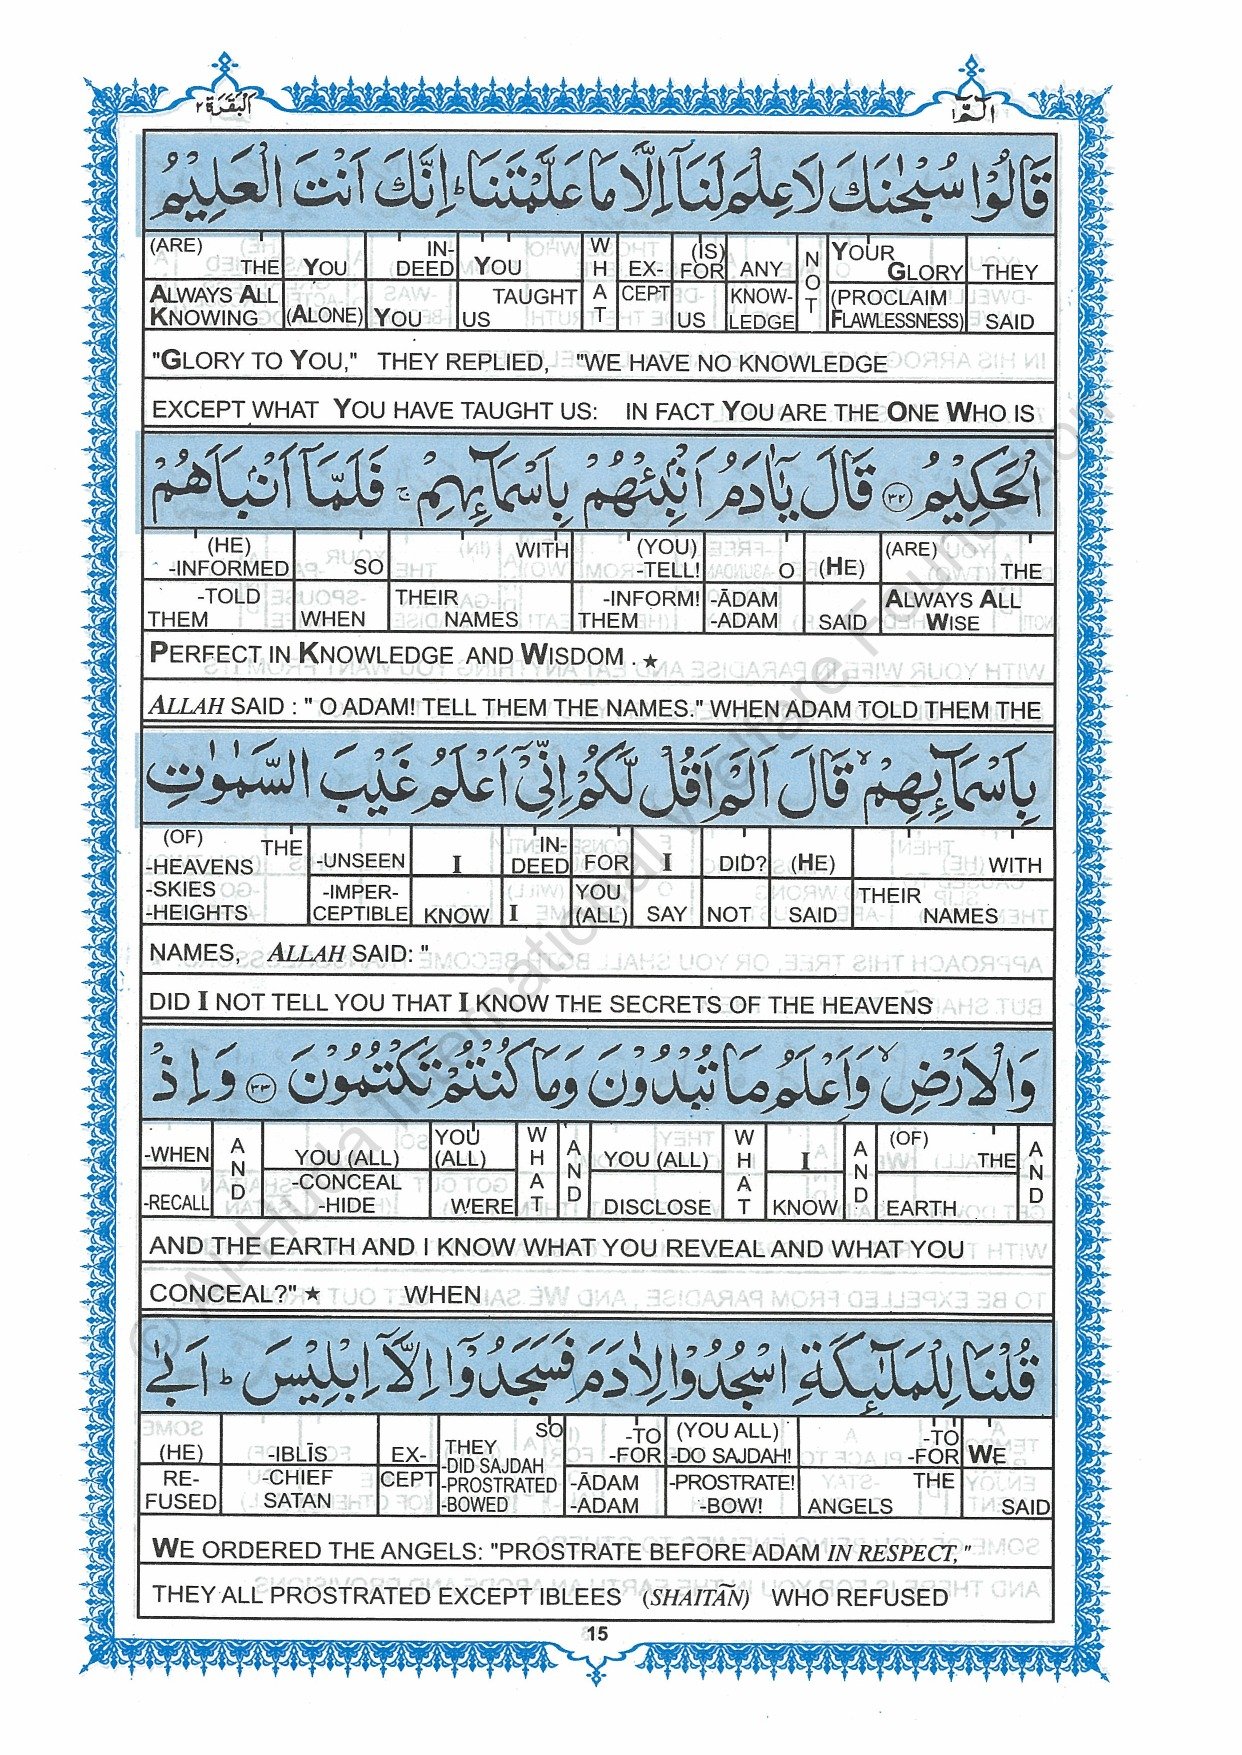 الٓمّٓ ١
اَلْبَقَرَة ٢
قَالُوْا سُبْحٰنَكَ لَا عِلْمَ لَنَآ اِلَّا مَا عَلَّمْتَنَا ؕ اِنَّكَ اَنْتَ الْعَلِيْمُ
(ARE) THE YOU IN- DEED YOU W H A T EX- (IS) FOR ANY N O T YOUR GLORY THEY
ALWAYS ALL KNOWING (ALONE) YOU US TAUGHT CEPT US KNOW- LEDGE (PROCLAIM FLAWLESSNESS) SAID
"GLORY TO YOU," THEY REPLIED, "WE HAVE NO KNOWLEDGE
EXCEPT WHAT YOU HAVE TAUGHT US: IN FACT YOU ARE THE ONE WHO IS
الْحَكِيْمُ ﴿۳۲﴾ قَالَ يٰٓاٰدَمُ اَنْۢبِئْهُمْ بِاَسْمَآئِهِمْ ۚ فَلَمَّآ اَنْۢبَاَهُمْ
(HE) -INFORMED SO WITH (YOU) -TELL! O (HE) (ARE) THE
-TOLD THEM WHEN THEIR NAMES -INFORM! THEM -ĀDAM -ADAM SAID ALWAYS ALL WISE
PERFECT IN KNOWLEDGE AND WISDOM . ★
ALLAH SAID : " O ADAM! TELL THEM THE NAMES." WHEN ADAM TOLD THEM THE
بِاَسْمَآئِهِمْ ۙ قَالَ اَلَمْ اَقُلْ لَّكُمْ اِنِّيْٓ اَعْلَمُ غَيْبَ السَّمٰوٰتِ
(OF) THE -HEAVENS -UNSEEN I IN- DEED FOR I DID? (HE) WITH
-SKIES -HEIGHTS -IMPER- CEPTIBLE KNOW I YOU (ALL) SAY NOT SAID THEIR NAMES
NAMES, ALLAH SAID: "
DID I NOT TELL YOU THAT I KNOW THE SECRETS OF THE HEAVENS
وَالْاَرْضِ ۙ وَاَعْلَمُ مَا تُبْدُوْنَ وَمَا كُنْتُمْ تَكْتُمُوْنَ ﴿۳۳﴾ وَاِذْ
-WHEN A N D YOU (ALL) YOU (ALL) W H A T A N D YOU (ALL) W H A T I A N D (OF) THE A N D
-RECALL -CONCEAL -HIDE WERE DISCLOSE KNOW EARTH
AND THE EARTH AND I KNOW WHAT YOU REVEAL AND WHAT YOU
CONCEAL?" ★ WHEN
قُلْنَا لِلْمَلٰٓئِكَةِ اسْجُدُوْا لِاٰدَمَ فَسَجَدُوْٓا اِلَّآ اِبْلِيْسَ ؕ اَبٰى
(HE) -IBLĪS EX- SO THEY -DID SAJDAH -TO -FOR (YOU ALL) -DO SAJDAH! -TO -FOR WE
RE- FUSED -CHIEF SATAN CEPT -PROSTRATED -BOWED -ĀDAM -ADAM -PROSTRATE! -BOW! THE ANGELS SAID
WE ORDERED THE ANGELS: "PROSTRATE BEFORE ADAM IN RESPECT,"
THEY ALL PROSTRATED EXCEPT IBLEES (SHAITĀN) WHO REFUSED
15
© Al-Huda International Welfare Foundation